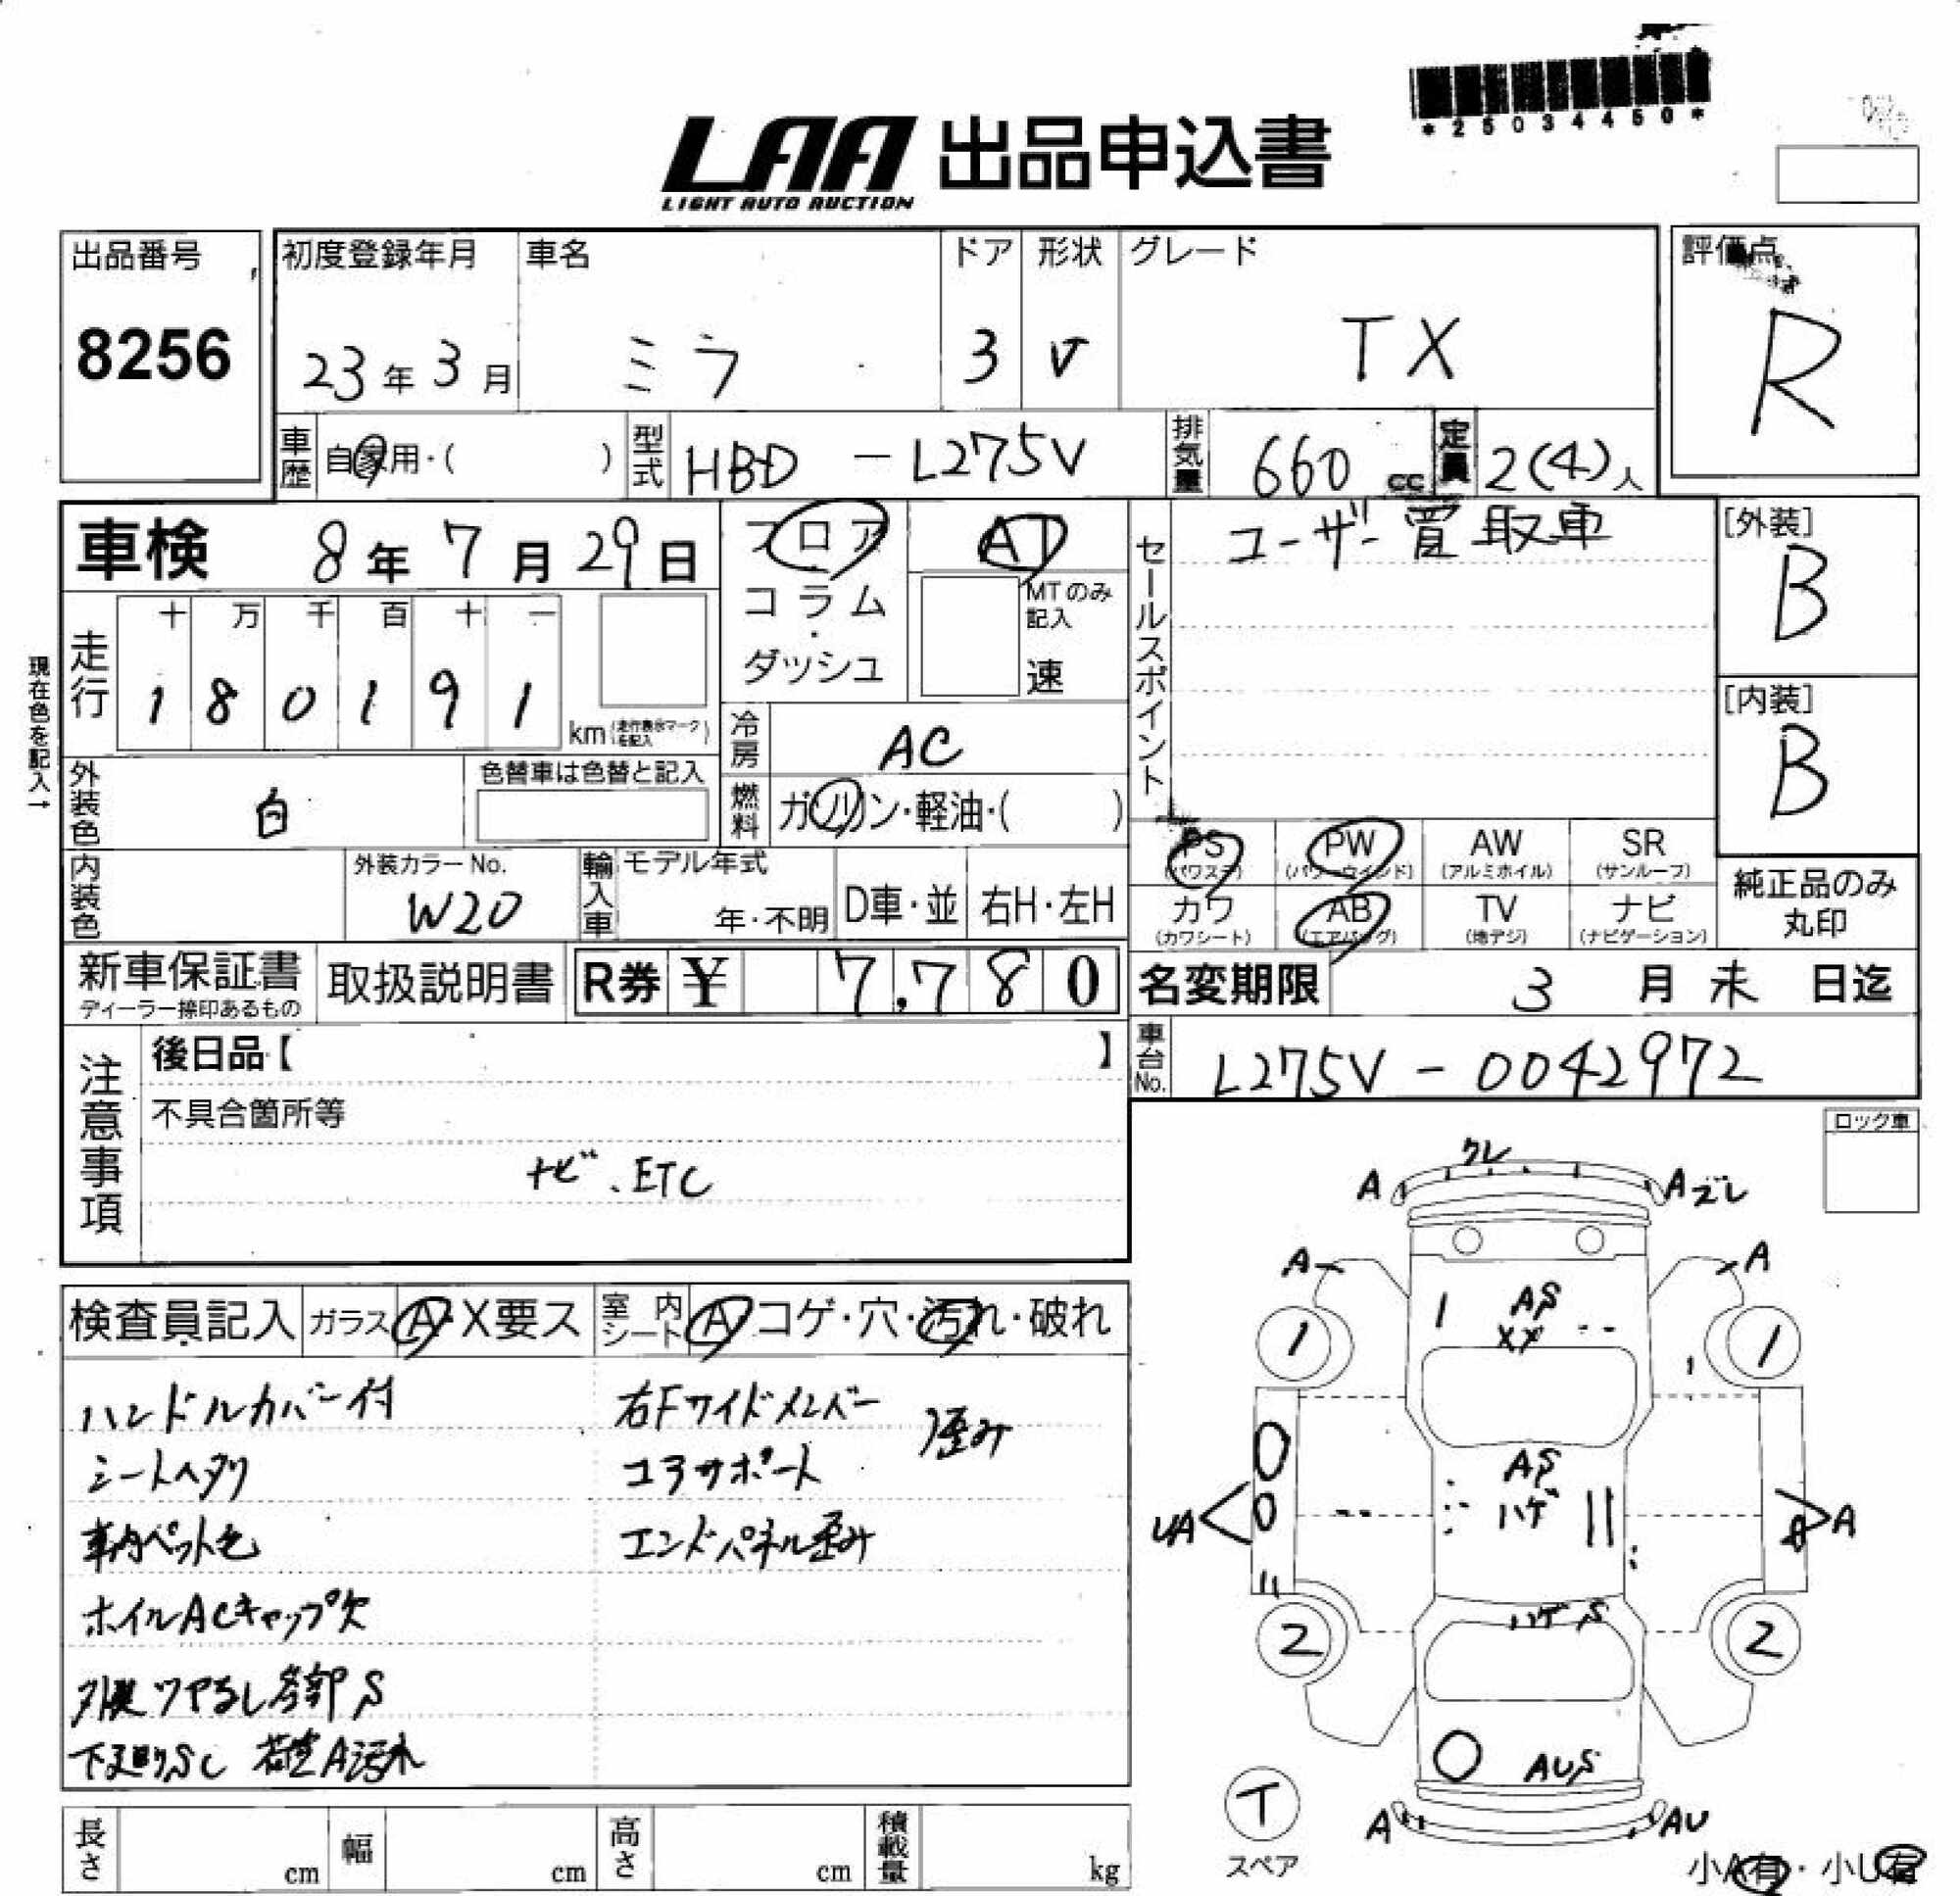 *25034450*
LAA 出品申込書
LIGHT AUTO AUCTION
出品番号
8256
初度登録年月
23年3月
車名
ミラ
ドア
3
形状
V
グレード
TX
評価点
R
車歴 自家用・( )
型式 HBD - L275V
排気量 660 cc
定員 2(4)人
車検 8年7月29日
フロア
コラム
・
ダッシュ
AT
MTのみ
記入
速
セールスポイント
ユーザー買取車
[外装]
B
[内装]
B
現在色を記入→
走行
十 万 千 百 十 一
1 8 0 1 9 1
km(走行表示マークを記入)
冷房 AC
外装色 白
色替車は色替と記入
燃料 ガソリン・軽油・( )
内装色
外装カラーNo.
W20
輸入車
モデル年式
年・不明
D車・並
右H・左H
PS
(パワステ)
PW
(パワーウインド)
AW
(アルミホイル)
SR
(サンルーフ)
カワ
(カワシート)
AB
(エアバッグ)
TV
(地デジ)
ナビ
(ナビゲーション)
純正品のみ
丸印
新車保証書
ディーラー捺印あるもの
取扱説明書
R券 ¥ 7,780
名変期限 3月末日迄
車台No. L275V - 0042972
注意事項
後日品【 】
不具合箇所等
ナビ、ETC
ロック車
検査員記入
ガラス A・X要ス
室内シート A コゲ・穴・汚れ・破れ
ハンドルカバー付
シートヘタリ
車内ペット毛
ホイルACキャップ欠
外装ツヤなし各部S
下廻りSC 荷室A汚れ
右Fサイドメンバー
コアサポート
歪み
エンドパネル歪み
ワレ
A
A ズレ
A
A
AS
XX
1
1
AS
ハゲ
UA
A
ハゲ S
2
2
AUS
T
スペア
A
AU
小A有・小U有
長さ cm
幅 cm
高さ cm
積載量 kg